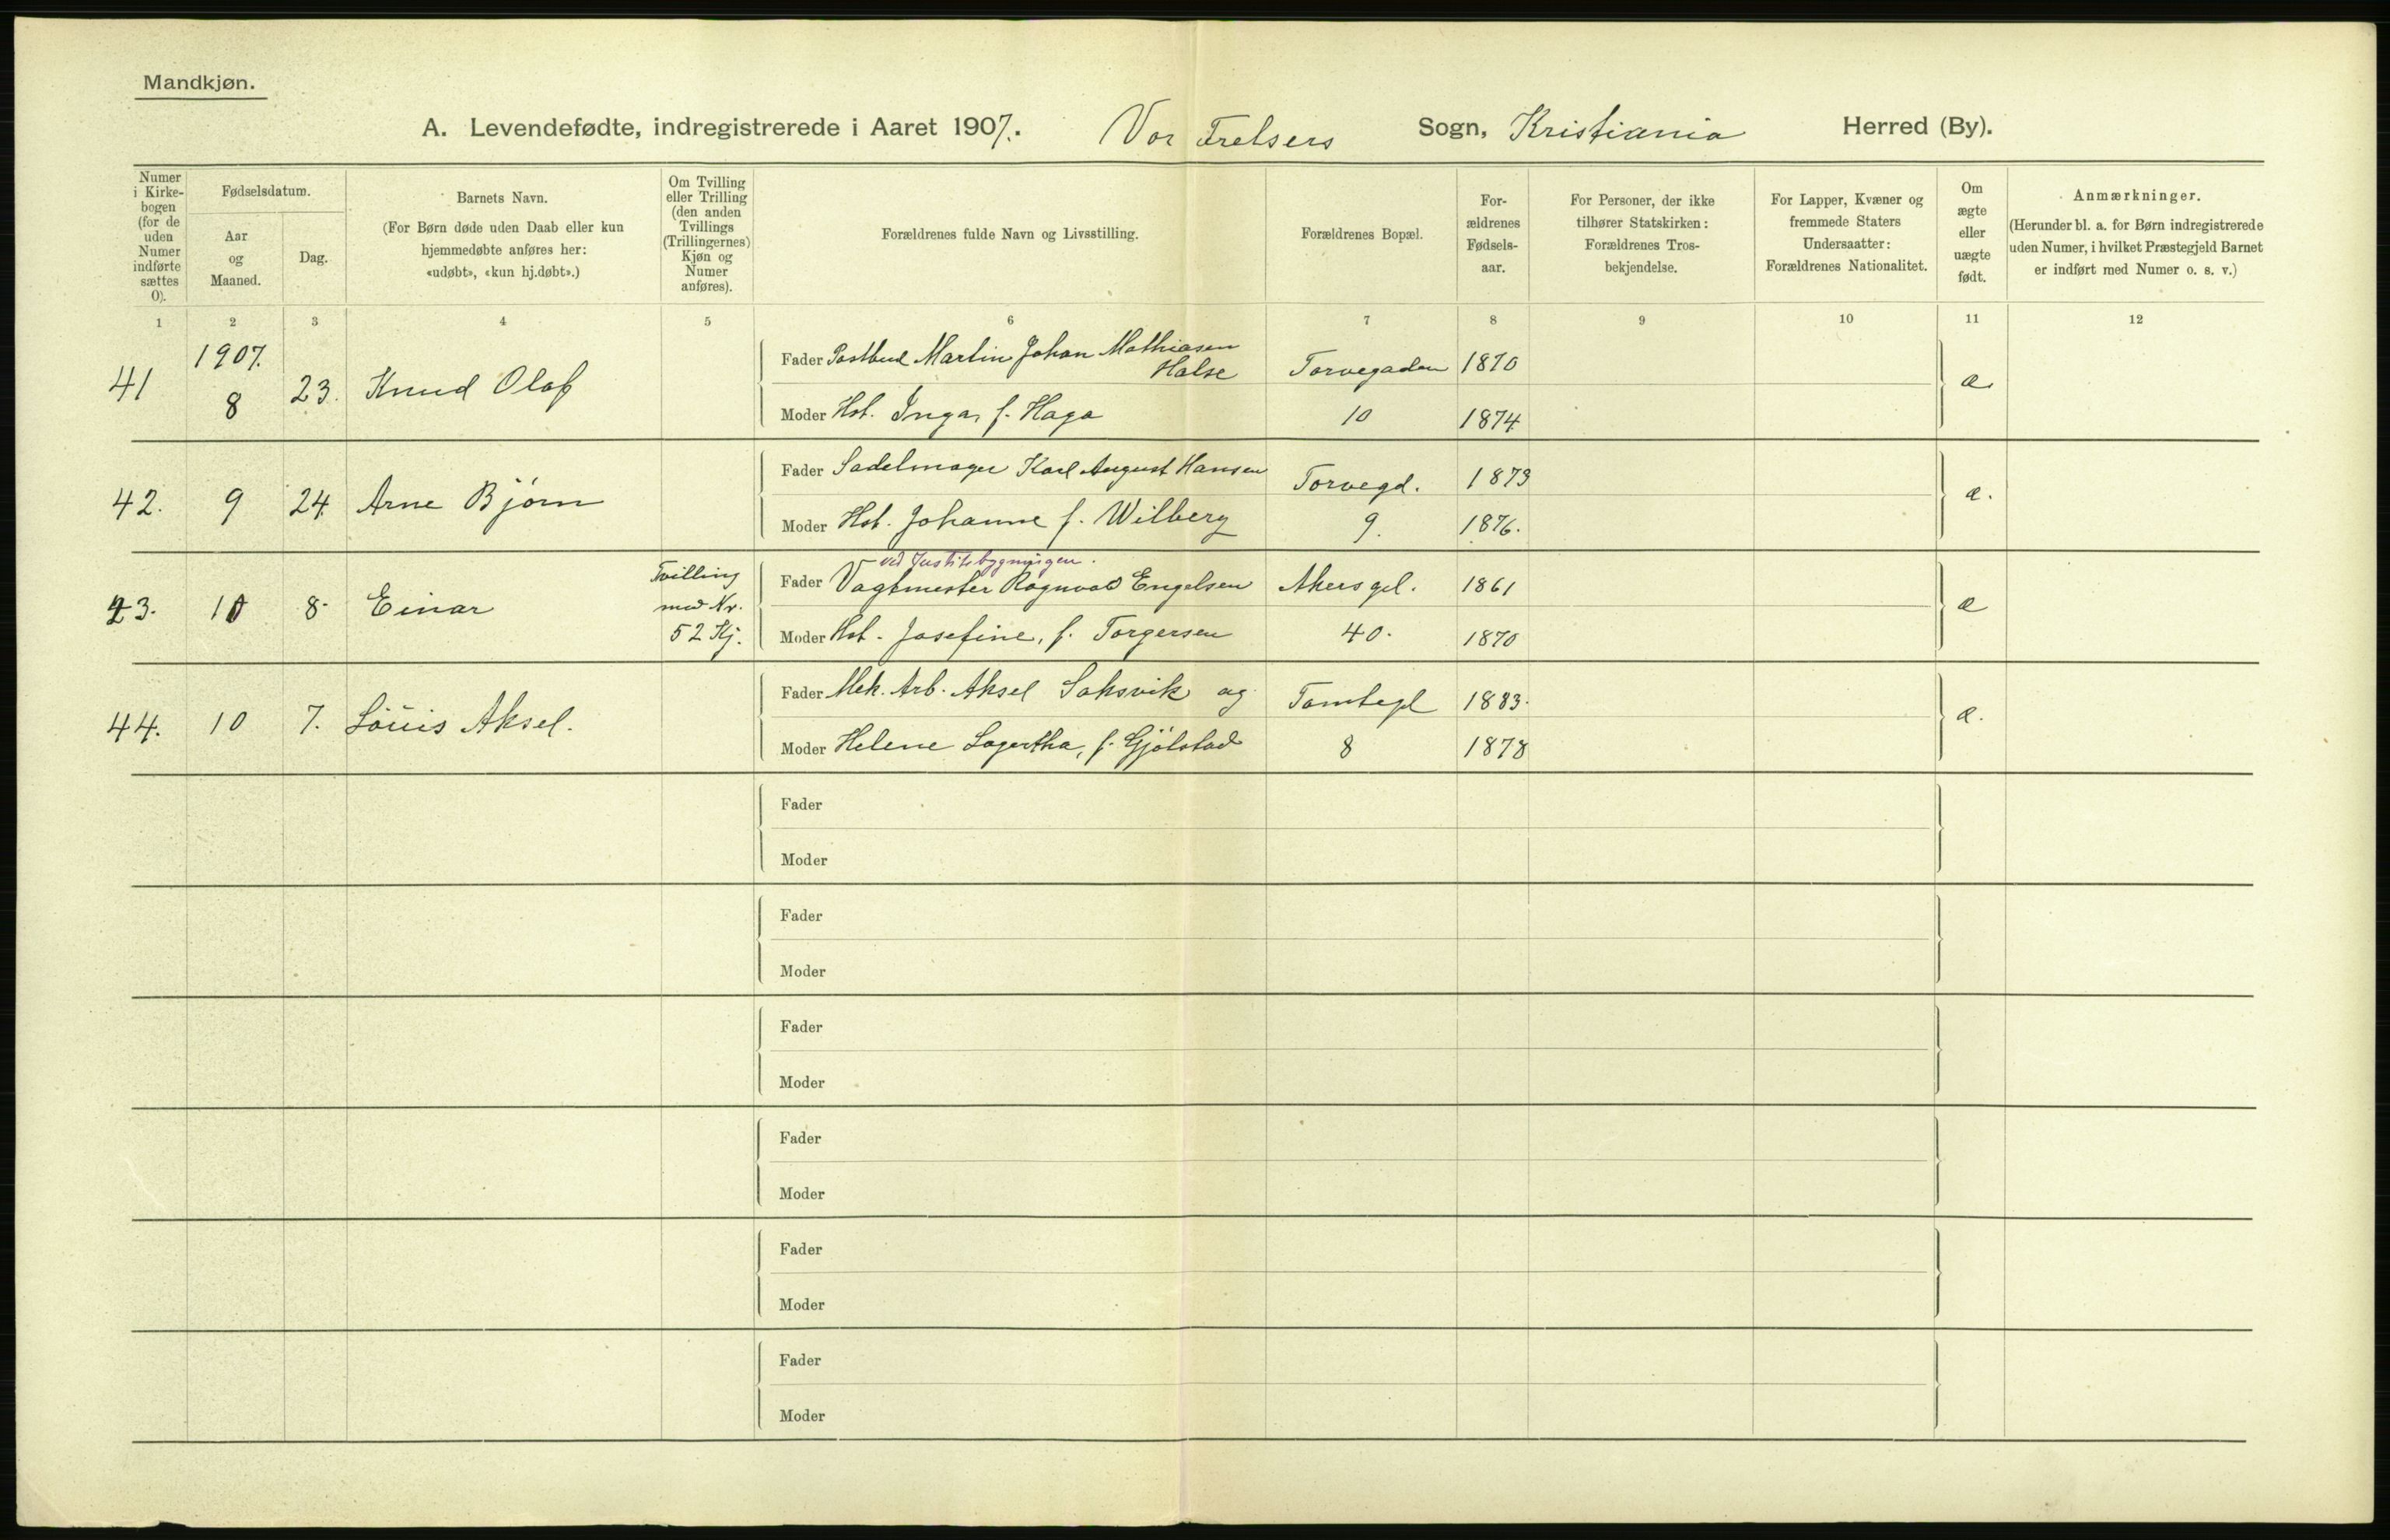 Mandkjøn.
A. Levendefødte, indregistrerede i Aaret 1907. Vor Frelsers Sogn, Kristiania Herred (By).
Numer i Kirke-bogen (for de uden Numer indførte sættes 0).
Fødselsdatum.
Aar og Maaned.
Dag.
Barnets Navn.
(For Børn døde uden Daab eller kun hjemmedøbte anføres her: «udøbt», «kun hj.døbt».)
Om Tvilling eller Trilling (den anden Tvillings (Trillingernes) Kjøn og Numer anføres).
Forældrenes fulde Navn og Livsstilling.
Forældrenes Bopæl.
For-ældrenes Fødsels-aar.
For Personer, der ikke tilhører Statskirken: Forældrenes Tros-bekjendelse.
For Lapper, Kvæner og fremmede Staters Undersaatter: Forældrenes Nationalitet.
Om ægte eller uægte født.
Anmærkninger.
(Herunder bl. a. for Børn indregistrerede uden Numer, i hvilket Præstegjeld Barnet er indført med Numer o. s. v.)
1 2 3 4 5 6 7 8 9 10 11 12
1907.
41 8 23. Knud Olaf
Fader Postbud Martin Johan Mathiasen Halse Torvegaden 1870 æ
Moder Hst. Inga, f. Haga 10 1874
42. 9 24. Arne Bjørn
Fader Sadelmager Karl August Hansen Torvegd. 1873 æ.
Moder Hst. Johanne f. Wilberg 9. 1876.
ved Justitsbygningen.
43. 10 8. Einar Tvilling med Nr. 52 Kj.
Fader Vagtmester Ragnvald Engelsen Akersgd. 1861 æ
Moder Hst. Josefine, f. Torgersen 40. 1870
44. 10 7. Louis Aksel.
Fader Mek. Arb. Aksel Saksvik og Tomtegd 1883. æ.
Moder Helene Lagertha, f. Gjølstad 8 1878
Fader
Moder
Fader
Moder
Fader
Moder
Fader
Moder
Fader
Moder
Fader
Moder